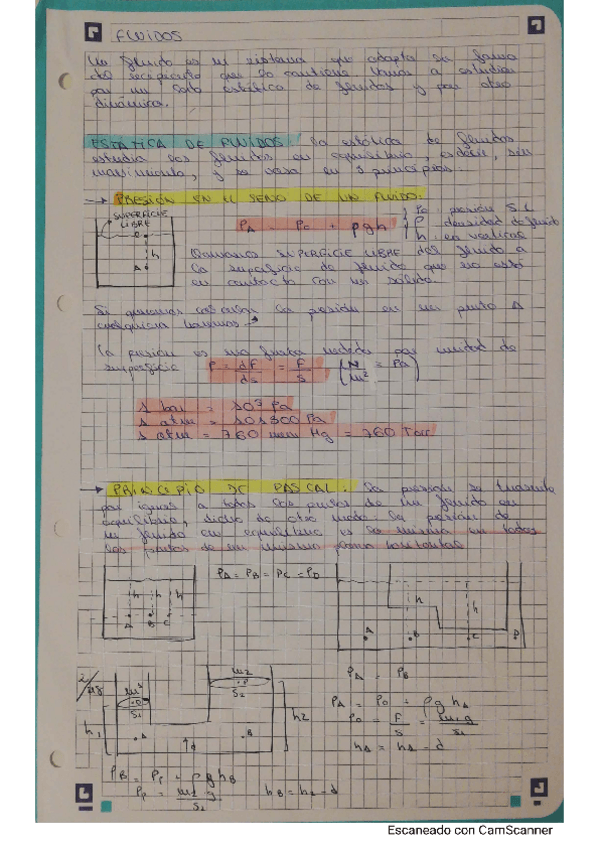 FLUIDOS
Un fluido es un sistema que adapta su forma
del recipiente que lo contiene. Vamos a estudiar
por un lado estática de fluidos y por otro
dinámica.
ESTATICA DE FLUIDOS: la estática de fluidos
estudia los fluidos en equilibrio, es decir, sin
movimiento, y se basa en 3 principios:
→ PRESIÓN EN EL SENO DE UN FLUIDO:
SUPERFICIE
LIBRE
h
A
PA = P0 + ρgh
P0: presión S.L
ρ: densidad de fluido
h: en vertical
Llamamos SUPERFICIE LIBRE del fluido a
la superficie de fluido que no está
en contacto con un sólido.
Si queremos calcular la presión en un punto A
cualquiera haremos →
La presión es una fuerza medida por unidad de
superficie P = dF/ds = F/s (N/m² = Pa)
1 bar = 10⁵ Pa
1 atm = 101300 Pa
1 atm = 760 mm Hg = 760 Torr
→ PRINCIPIO DE PASCAL: La presión se transmite
por igual a todos los puntos de un fluido en
equilibrio, dicho de otro modo la presión de
un fluido en equilibrio es la misma en todos
los puntos de un mismo plano horizontal
PA = PB = PC = PD
h h h
A B C
h h
A B C D
PA = PB
m1
S1
m2
S2
h1
h2
A B
d
PA = P0 + ρg hA
P0 = F/s = m1g/s1
hA = h1 - d
PB = PP + ρg hB
PP = m2 g/s2
hB = h2 - d
Escaneado con CamScanner